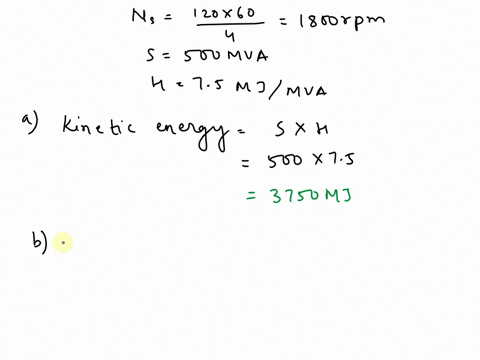 Ns = 120×60/4 = 1800rpm
S = 500 MVA
H = 7.5 MJ/MVA
a) Kinetic energy = S × H
= 500 × 7.5
= 3750 MJ
b)